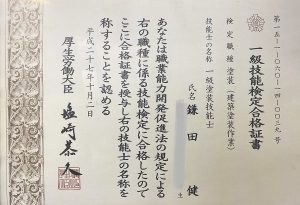 第一五-一-一〇六〇-一四-〇〇三九号
一級技能検定合格証書
検定職種 塗装(建築塗装作業)
技能士の名称 一級塗装技能士
氏名 鎌田 健
生
あなたは職業能力開発促進法の規定による
右の職種に係る技能検定に合格したので
ここに合格証書を授与し右の技能士の名称を
称することを認める
平成二十七年十月二日
厚生労働大臣 塩崎恭久